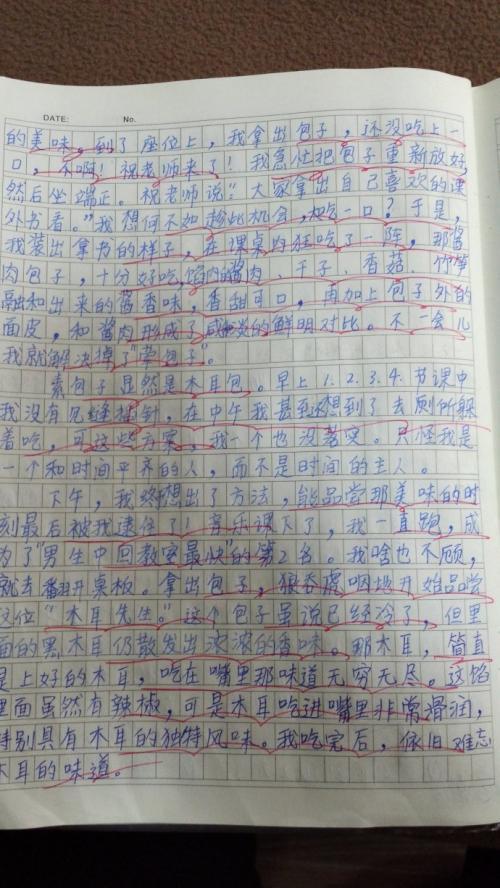 DATE: No.
的美味。到了座位上，我拿出包子，还没吃上一
口，不啊！祝老师来了！我急忙把包子重新放好，
然后坐端正。祝老师说："大家拿出自己喜欢的课
外书看。"我想何不如趁此机会，吃一口？于是，
我装出拿书的样子，在课桌内狂吃了一阵，那酱
肉包子，十分好吃，馅内的酱肉、干子、香菇、竹笋
融和出来的酱香味，香甜可口，再加上包子外的
面皮，和酱肉形成了咸淡的鲜明对比。不一会儿
我就解决掉了"荤包子"。
素包子虽然是木耳包。早上1.2.3.4.节课中
我没有见缝插针，在中午我甚至还想到了去厕所躲
着吃，可这些方案，我一个也没落实。只怪我是
一个和时间平齐的人，而不是时间的主人。
下午，我终想出了方法，能品尝那美味的时
刻最后被我逮住了！音乐课下了，我一直跑，成
为了"男生中回教室最快"的第2名。我啥也不顾，
就去翻开桌板。拿出包子，狼吞虎咽地开始品尝
这位"木耳先生"。这个包子虽说已经冷了，但里
面的黑木耳仍散发出浓浓的香味。那木耳，简直
是上好的木耳，吃在嘴里那味道无穷无尽。这馅
里面虽然有辣椒，可是木耳吃进嘴里非常滑润，
特别具有木耳的独特风味。我吃完后，依旧难忘
木耳的味道。